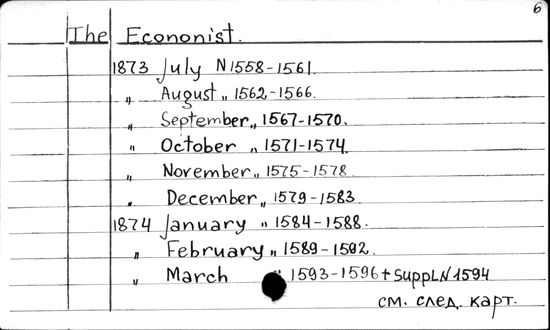 6
The Econonist.
1873 July N1558-1561.
„ August „ 1562-1566.
„ September „ 1567-1570.
„ October „ 1571-1574.
„ November „ 1575-1578
„ December „ 1579-1583.
1874 January „ 1584-1588.
„ February „ 1589-1592.
„ March „ 1593-1596 + Suppl N 1594
см. след. карт.